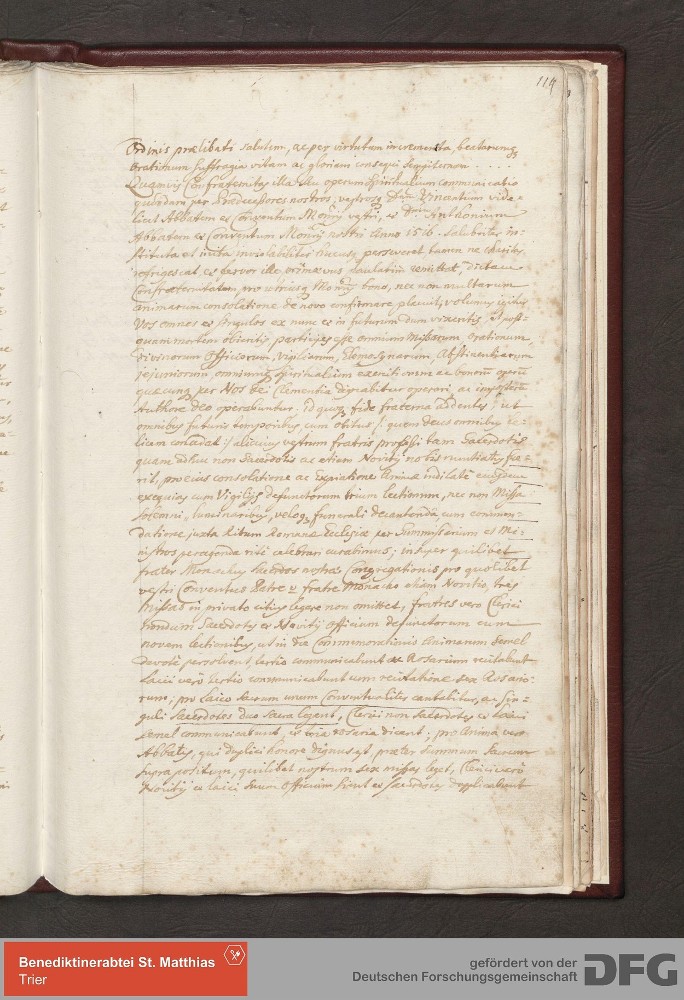 114
Ordinis prælibati salutem, ac per virtutum incrementa, beatarumq3
Orationum suffragia vitam ac gloriam consequi sempiternam . . . .
Quamvis Confraternitas illa seu operum Spiritualium communicatio
quædam per Prædecessores nostros; vestros Dnum Vincentium vide=
licet Abbatem et Conventum Monrÿ vestri, et Dnum Anthonium
Abbatem et Conventum Monrÿ nostri Anno 1516. Salubriter in=
stituta et inita inviolabiliter hucusq3 perseveret tamen ne charitas
refrigescat, et fervor ille primævus paulatim
Confraternitatem, pro utriusq3 Monrÿ bono, nec non multarum
animarum consolatione de novo confirmare placuit, volumus igitur
Vos omnes et singulos ex nunc et in futurum dum vixeritis, et post=
quam mortem obieritis participes esse omnium Missarum, orationum,
divinorum Officiorum, Vigiliarum, Elemosynarum, Abstinentiarum
jejuniorum, omniumq3 Spiritualium exercitiorum ac bonorum operum
quæcunq3 per Nos Dei Clementia dignabitur operari, ac in
Authore deo operabuntur. id quoq3 fide fraterna addentes, ut
omnibus futuris temporibus, cum obitus /: quem deus omnibus fe=
licem concedat :/ alicuius vestrum fratris professi tam Sacerdotis
quam adhuc non Sacerdotis ac etiam Novitÿ nobis nuntiatus fue=
rit, pro eius consolatione ac Expiatione Animæ indilatè
exequias cum Vigilÿs defunctorum trium lectionum, nec non Missa
solemni, luminaribus, funerali decantanda cum commen=
datione juxta Ritum Romanæ Ecclesiæ per Summissarium et Mi=
nistros peragenda ritè celebrari curabimus; insuper quilibet
frater Monachus Sacerdos nostræ Congregationis pro quolibet
vestri Conventus Patre et fratre Monacho etiam Novitio, tres
Missas in privato citius legere non omittet, fratres vero Clerici
nondum Sacerdotes et Novitÿ Officium defunctorum cum
novem lectionibus, ut in die Commemorationis Animarum semel
devotè persolvent, tertio communicabunt ac Rosarium recitabunt
Laici verò tertio communicabunt cum recitatione sex Rosario=
rum; pro Laico sacrum unum Conventualiter cantabitur, ac Sin=
guli Sacerdotes duo sacra legent, Clerici non Sacerdotes et Laici
semel communicabunt, et tria rosaria dicent; pro Anima vero
Abbatis, qui duplici honore dignus est, præter summum sacrum
supra positum, quilibet nostrum sex missas leget, Clerici verò
Novitÿ et Laici suum Officium sicut et Sacerdotes duplicabunt
Benediktinerabtei St. Matthias
Trier
gefördert von der
Deutschen Forschungsgemeinschaft
DFG